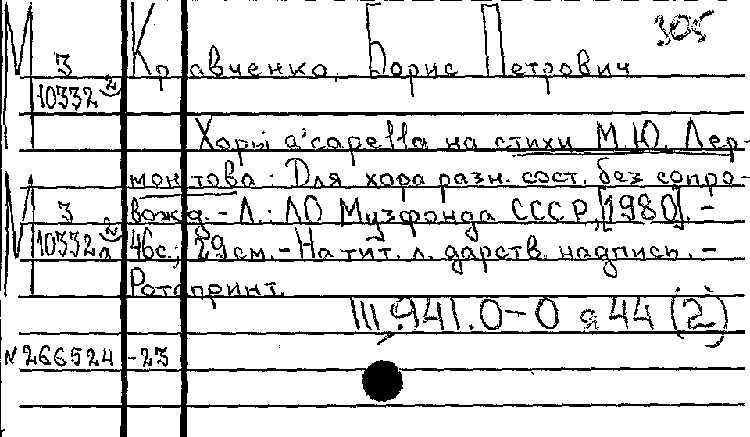 М 3 Кравченко, Борис Петрович 305
10332
Хоры a'capella на стихи М.Ю. Лер-
монтова: Для хора разн. сост. без сопро-
М 3 вожд. - Л.: ЛО Музфонда СССР, [1980]. -
10332а 46с.; 29см. - На тит. л. дарств. надпись. -
Ротапринт.
III.941.0-0 я 44 (2)
N266524-23